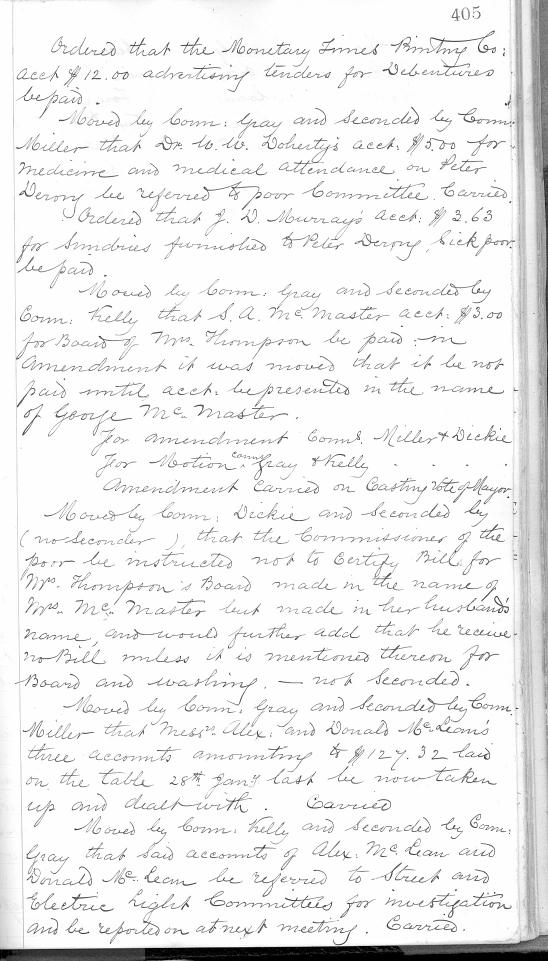 405
Ordered that the Monetary Times Printing Co:
acct $12.00 advertising tenders for Debentures
be paid.
Moved by Coun: Gray and Seconded by Coun:
Miller that Dr. W. W. Doherty's acct: $5.00 for
medicine and medical attendance on Peter
Derony be referred to poor Committee. Carried.
Ordered that J. D. Murray's acct: $3.63
for Sundries furnished to Peter Derony, Sick poor
be paid.
Moved by Coun: Gray and Seconded by
Coun: Kelly that S. A. McMaster acct: $3.00
for Board of Mrs. Thompson be paid: in
amendment it was moved that it be not
paid until acct: be presented in the name
of George McMaster.
For amendment Couns. Miller & Dickie
For Motion Couns: Gray & Kelly
Amendment Carried on Casting Vote of Mayor.
Moved by Coun: Dickie and Seconded by
(no Seconder), that the Commissioner of the
poor be instructed not to Certify Bill for
Mrs. Thompson's Board made in the name of
Mrs. McMaster but made in her husband's
name, and would further add that he receive
no Bill unless it is mentioned thereon for
Board and washing. - not Seconded.
Moved by Coun: Gray and Seconded by Coun:
Miller that Messrs. Alex: and Donald McLean's
three accounts amounting to $127.32 laid
on the table 28th Jany last be now taken
up and dealt with. Carried
Moved by Coun: Kelly and Seconded by Coun:
Gray that said accounts of Alex. McLean and
Donald McLean be referred to Street and
Electric Light Committees for investigation
and be reported on at next meeting. Carried.